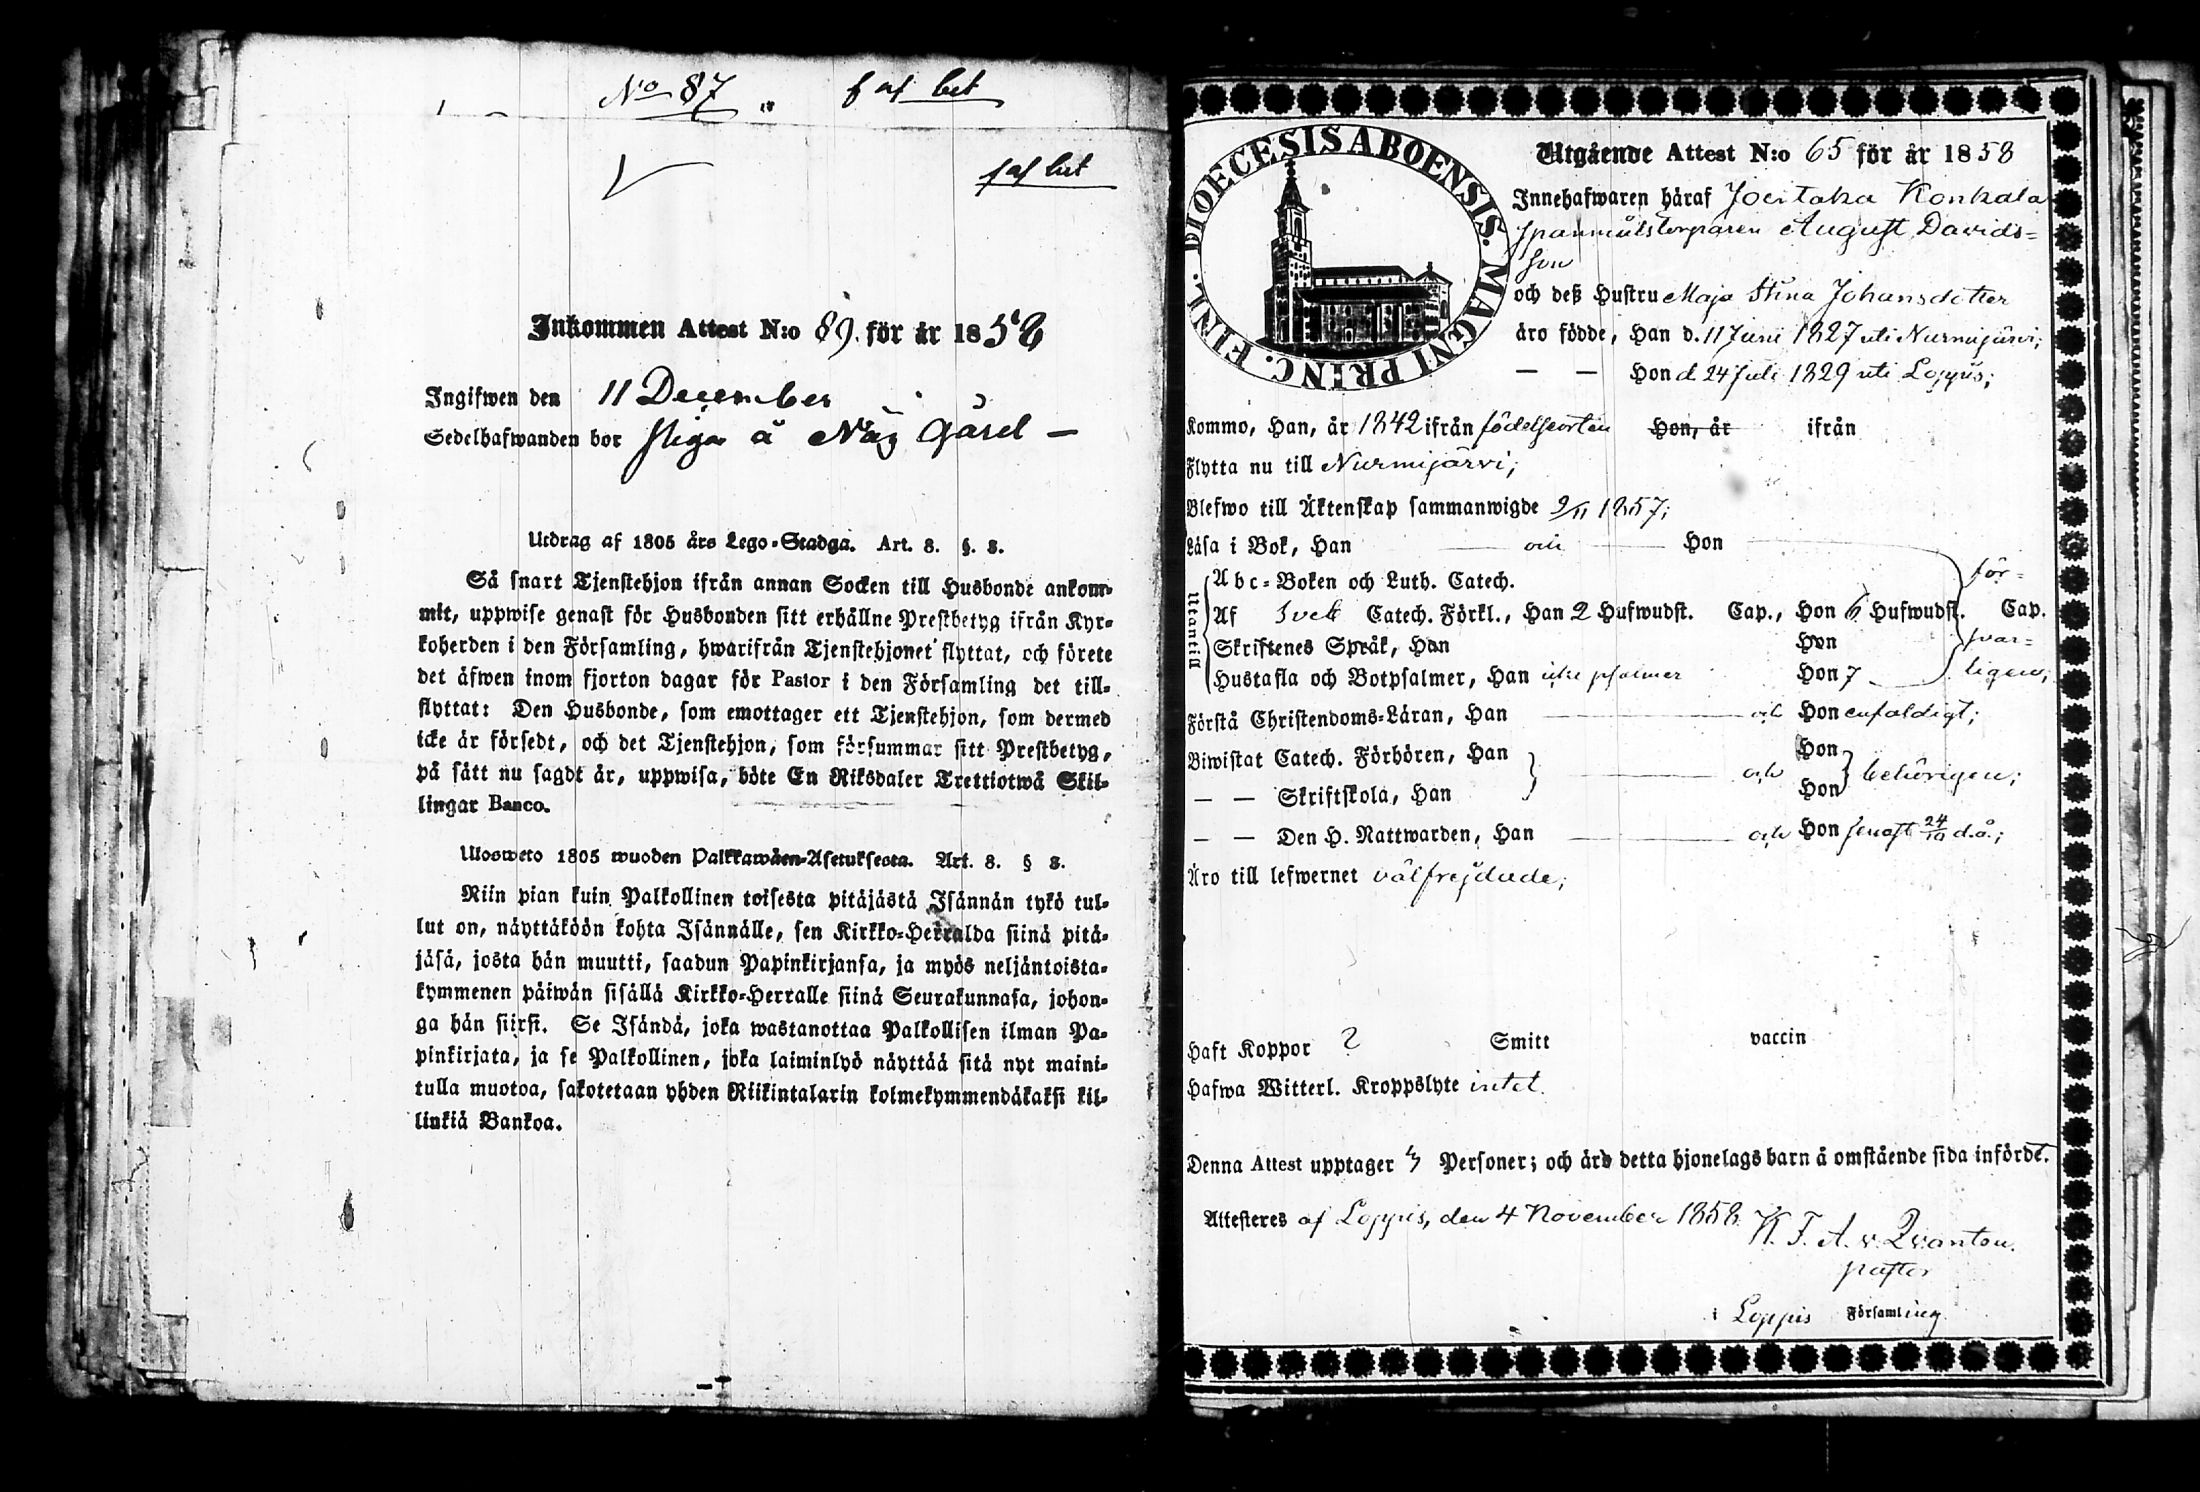 No 87
f af bet
f af bet
Inkommen Attest N:o 89. för år 1858
Ingifwen den 11 December
Sedelhafwanden bor
Utdrag af 1805 års Lego-Stadga. Art. 8. §. 8.
Så snart Tjenstehjon ifrån annan Socken till Husbonde ankom-
mit, uppwise genast för Husbonden sitt erhållne Prestbetyg ifrån Kyr-
koherden i den Församling, hwarifrån Tjenstehjonet flyttat, och förete
det äfwen inom fjorton dagar för Pastor i den Församling det till-
flyttat: Den Husbonde, som emottager ett Tjenstehjon, som dermed
icke är försedt, och det Tjenstehjon, som försummar sitt Prestbetyg,
på sätt nu sagdt är, uppwisa, böte En Riksdaler Trettiotwå Skil-
lingar Banco.
Ulosweto 1805 wuoden Palkkawäen-Asetuksesta. Art. 8. § 8.
Niin pian kuin Palkollinen toisesta pitäjästä Isännän tykö tul-
lut on, näyttäköön kohta Isännälle, sen Kirkko-Herralda siinä pitä-
jäsä, josta hän muutti, saadun Papinkirjansa, ja myös neljäntoista-
kymmenen päiwän sisällä Kirkko-Herralle siinä Seurakunnasa, johon-
ga hän siirsi. Se Isändä, joka wastanottaa Palkollisen ilman Pa-
pinkirjata, ja se Palkollinen, joka laiminlyö näyttää sitä nyt maini-
tulla muotoa, sakotetaan yhden Riikintalarin kolmekymmendäkaksi kil-
linkiä Bankoa.
DIOECESIS ABOENSIS. MAGNI PRINC. FINL.
Utgående Attest N:o 65 för år 1858
Innehafwaren häraf Joentaka Konkala
August Davids=
son
och deß Hustru Maja Stina Johansdotter
äro födde, Han d. 11 Juni 1827 uti Nurmijärvi;
— — Hon d 24 Juli 1829 uti Loppis;
Kommo, Han, år 1842 ifrån födelseorten Hon, år ifrån
Flytta nu till Nurmijärvi;
Blefwo till Äktenskap sammanwigde 9/11 1857;
Läsa i Bok, Han och Hon
Utantill
Abc-Boken och Luth. Catech. för=
Af Sveb Catech. Förkl., Han 2 Hufwudst. Cap., Hon 6 Hufwudst. Cap.
Skriftenes Språk, Han Hon svar=
Hustafla och Botpsalmer, Han icke psalmer Hon 7 ligen;
Förstå Christendoms-Läran, Han och Hon enfaldigt;
Biwistat Catech. Förhören, Han Hon
och behörigen;
— — Skriftskola, Han Hon
— — Den H. Nattwarden, Han och Hon senast 24/10 d.å.;
Äro till lefwernet välfrejdade;
Haft Koppor ? Smitt vaccin
Hafwa Witterl. Kroppslyte intet.
Denna Attest upptager 3 Personer; och äro detta hjonelags barn å omstående sida införde.
Attesteres af Loppis, den 4 November 1858
K. F. A. v. Qvanten.
pastor
i Loppis Församling